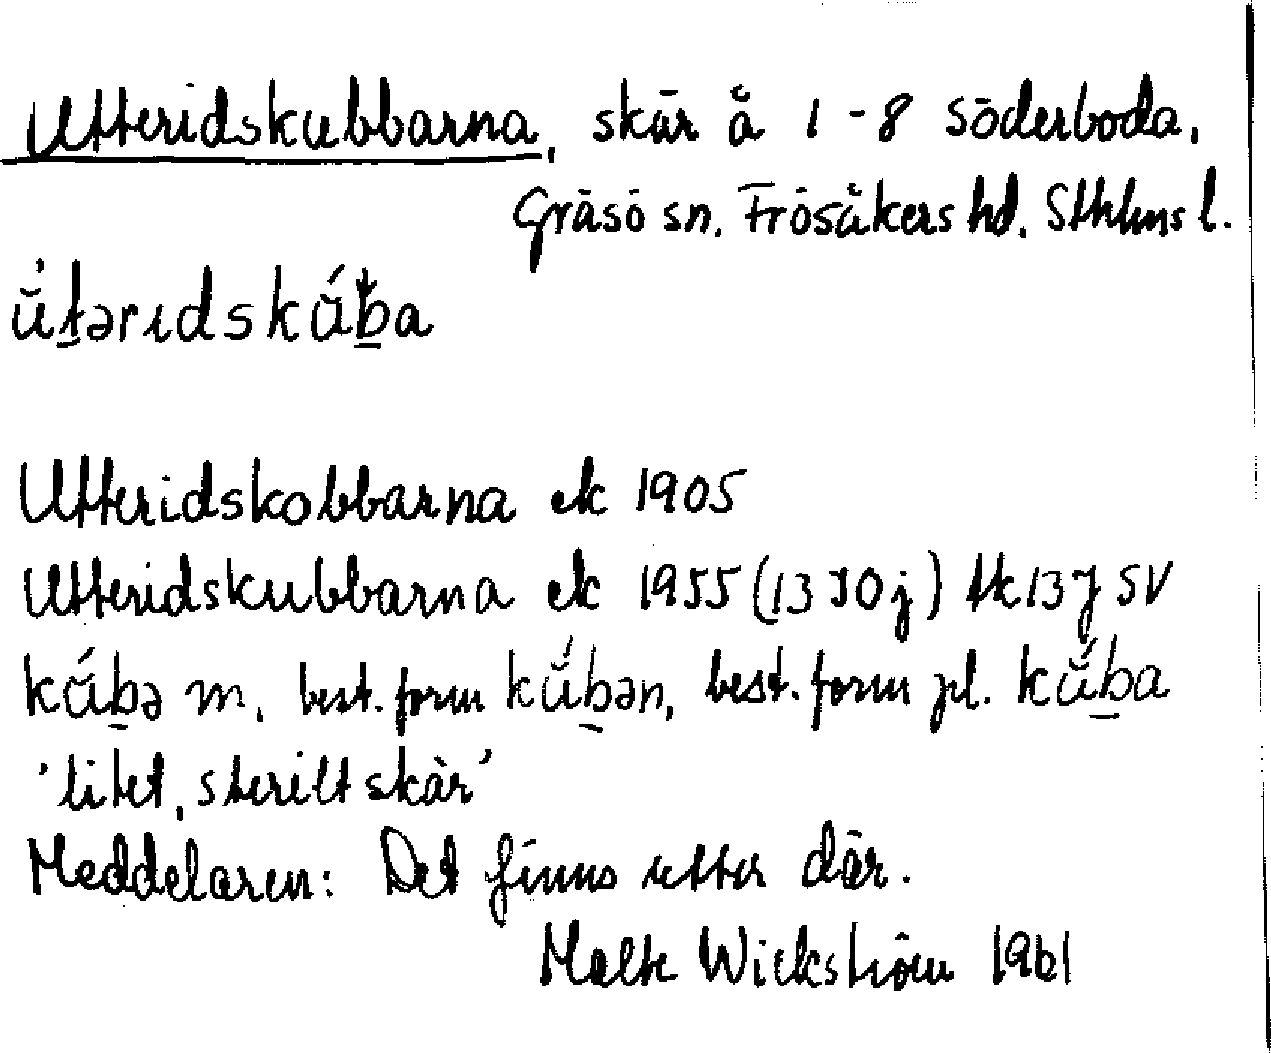 Utteridskubbarna, skär å 1-8 Söderboda,
Gräsö sn. Frösåkers hd. Sthlms l.
ǜt̲ərɩdskǘb̲a
Utteridskobbarna ek 1905
Utteridskubbarna ek 1955 (13 I 0 j) tk 137 SV
kǘb̲ə m. best. form kǘb̲ən, best. form pl. kǘb̲a
'litet, sterilt skär'
Meddelaren: Det finns utter där.
Malte Wickström 1961